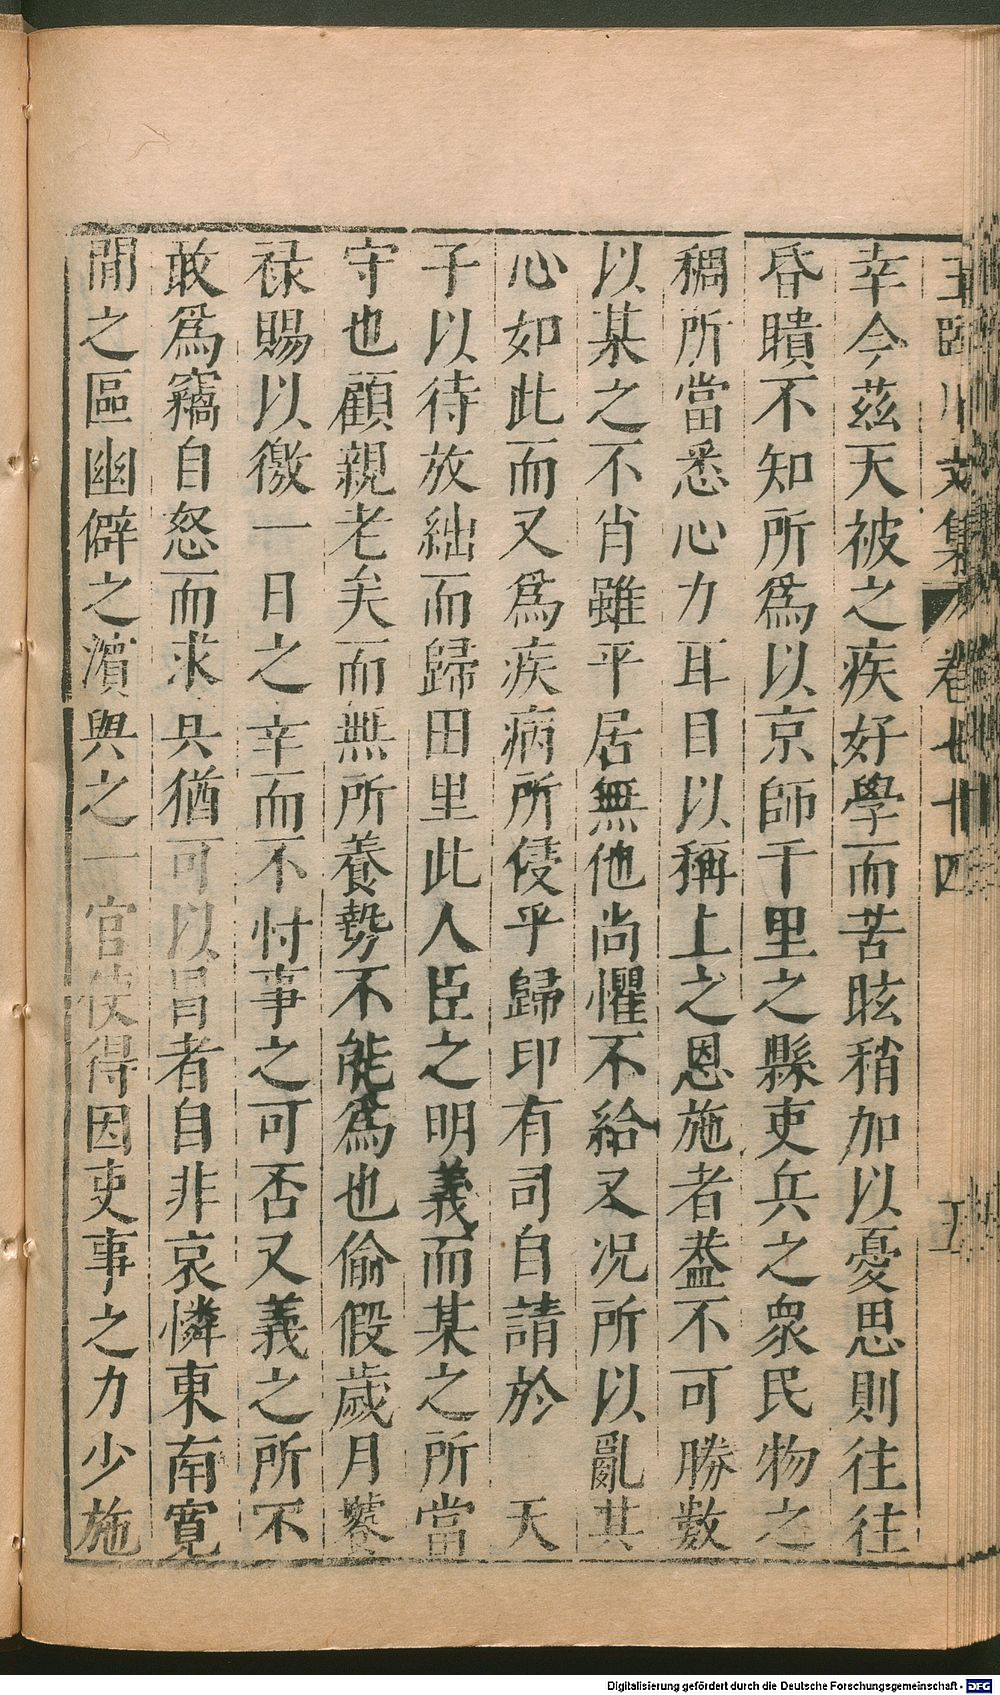 王臨川文集 卷七十四
幸今茲天被之疾好學而苦眩稍加以憂思則往往
昏瞶不知所爲以京師千里之縣吏兵之衆民物之
稠所當悉心力耳目以稱上之恩施者葢不可勝數
以某之不肖雖平居無他尚懼不給又况所以亂其
心如此而又爲疾病所侵乎歸印有司自請於 天
子以待放絀而歸田里此人臣之明義而某之所當
守也顧親老矣而無所養勢不能爲也偷假歲月饕
祿賜以徼一日之幸而不忖事之可否又義之所不
敢爲竊自恕而求其猶可以冒者自非哀憐東南寛
閒之區幽僻之濵與之一官使得因吏事之力少施
Digitalisierung gefördert durch die Deutsche Forschungsgemeinschaft - DFG